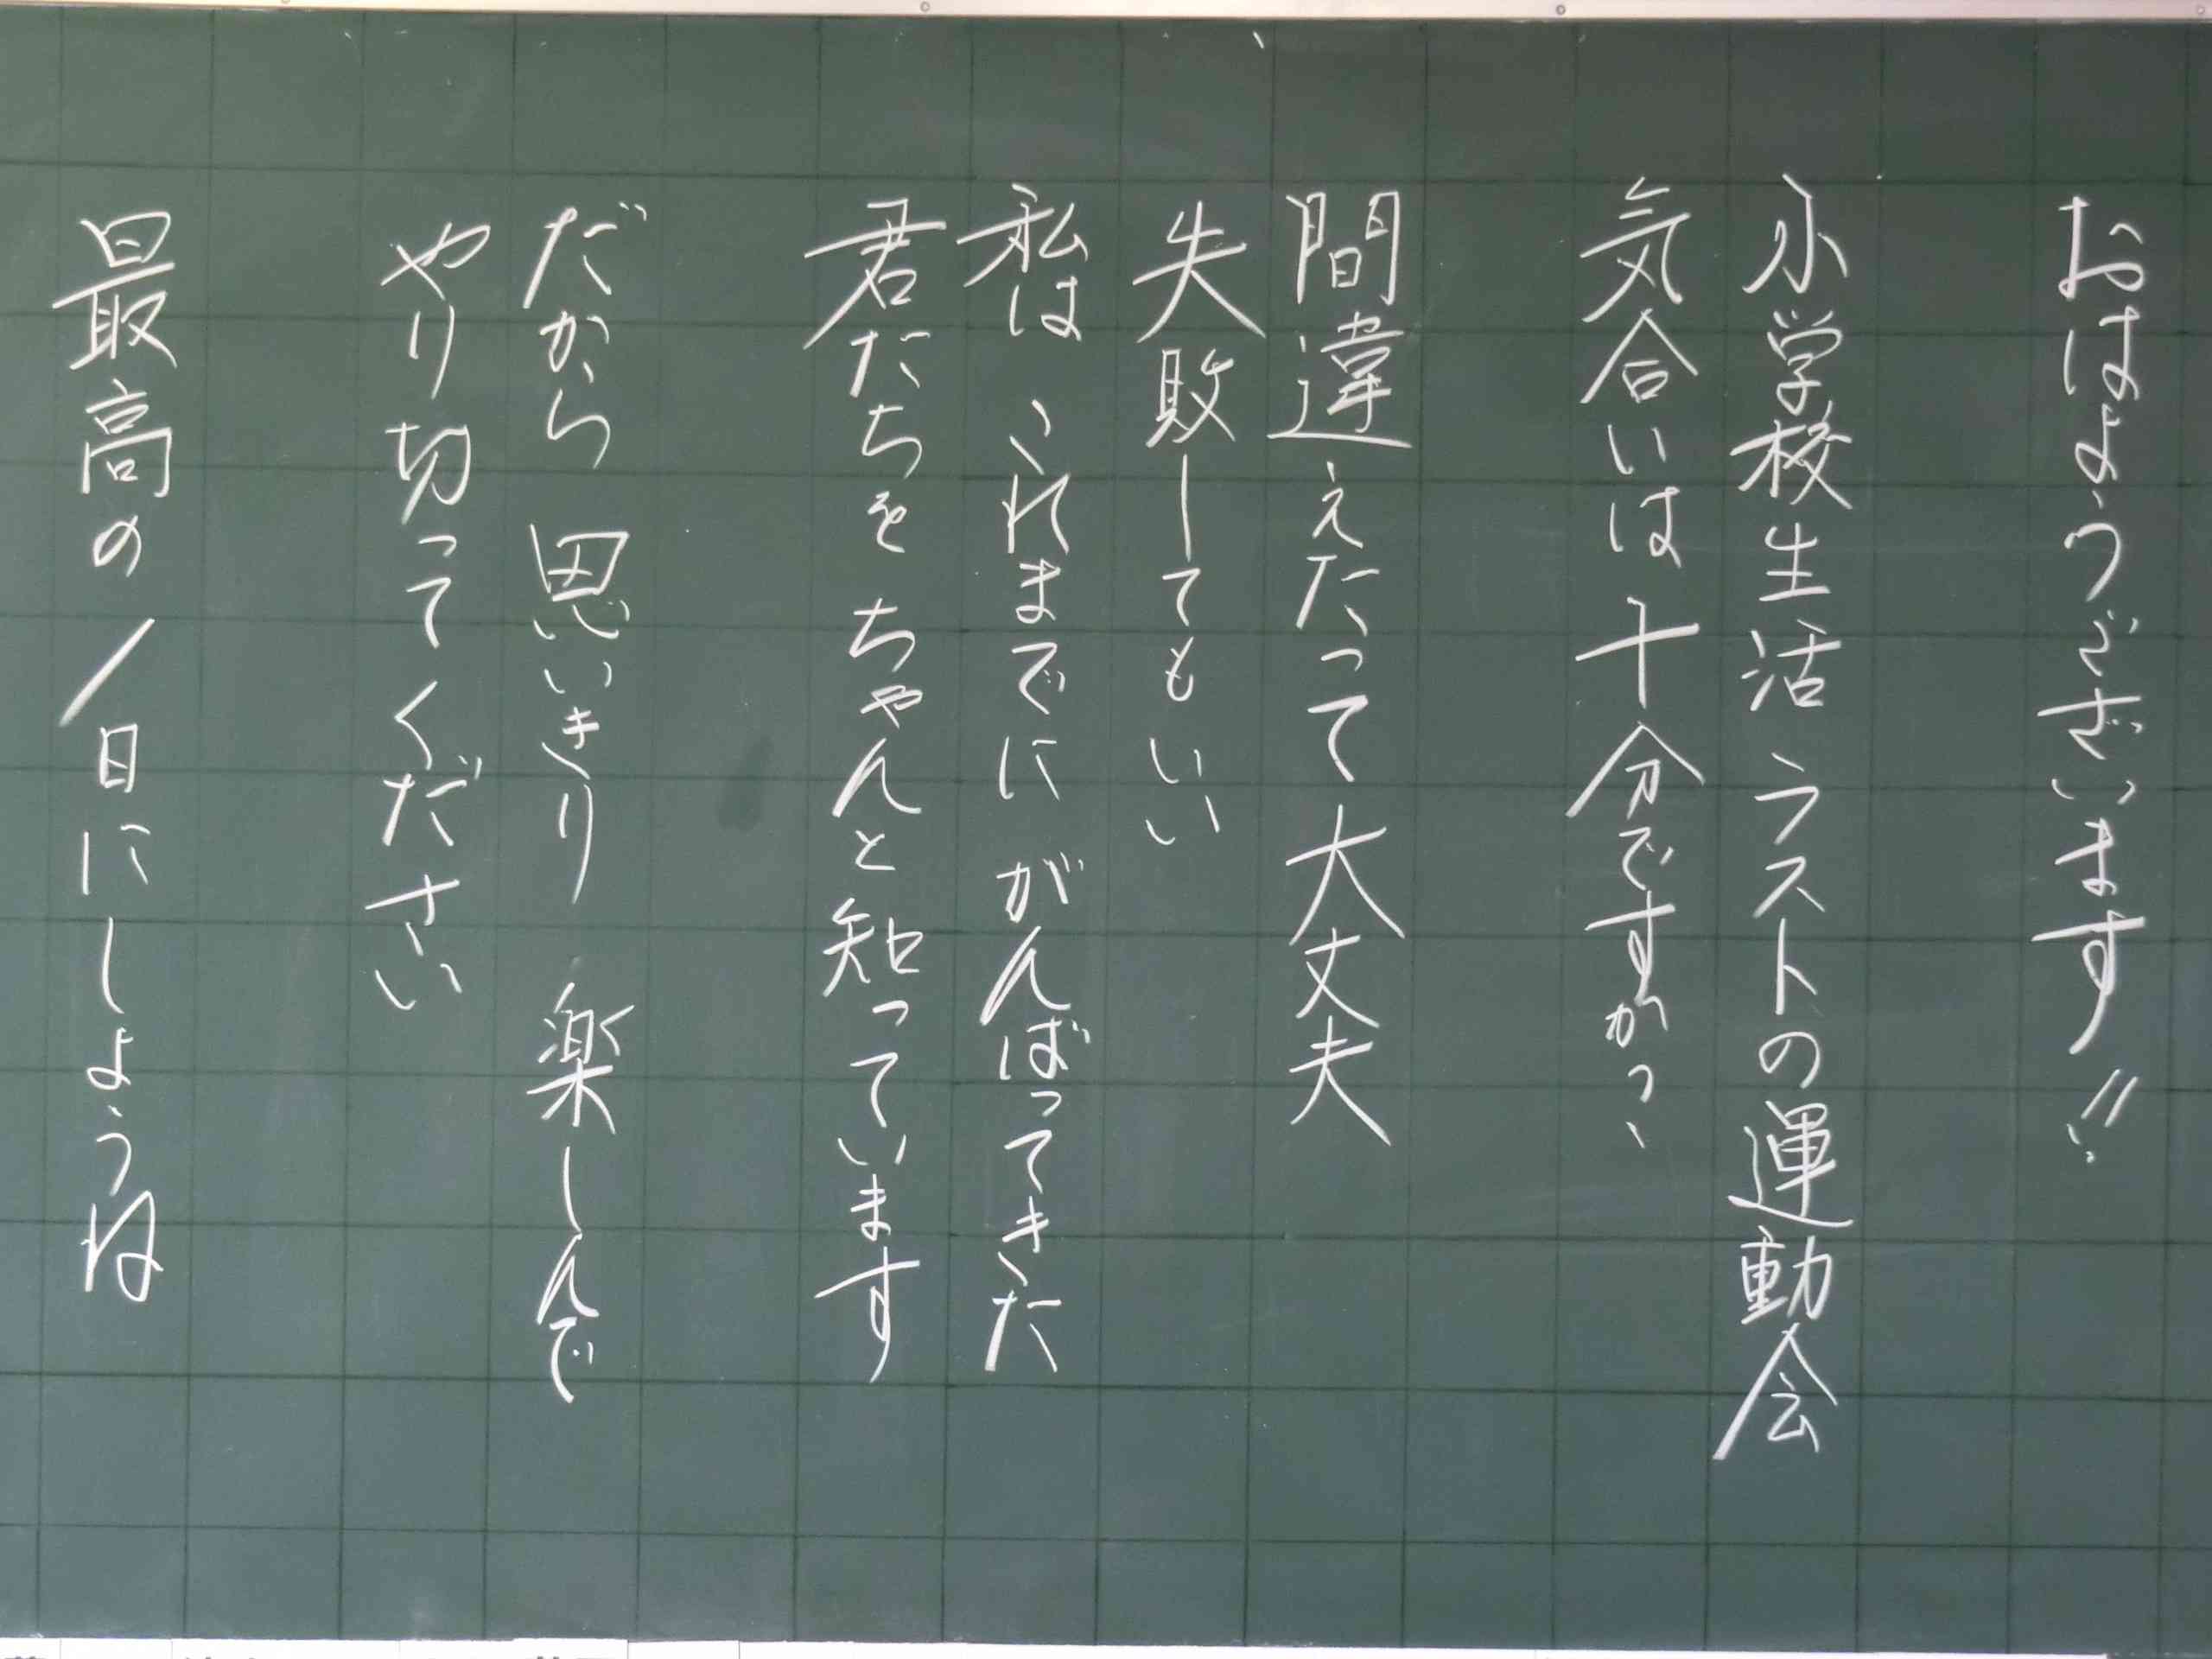 おはようございます!!
小学校生活 ラストの運動会
気合いは 十分ですかっ?
間違えたって 大丈夫
失敗してもいい
私は これまでに がんばってきた
君たちを ちゃんと知っています
だから 思いきり 楽しんで
やり切って ください
最高の 1日にしようね